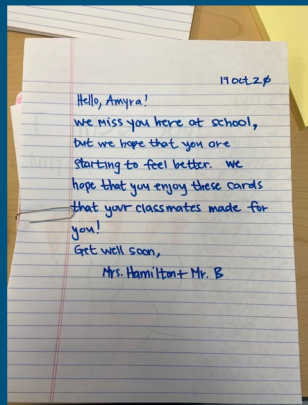 19 Oct 20
Hello, Amyra!
We miss you here at school,
but we hope that you are
starting to feel better. We
hope that you enjoy these cards
that your classmates made for
you!
Get well soon,
Mrs. Hamilton + Mr. B